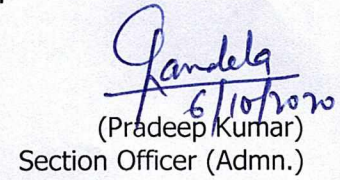 6/10/2020
(Pradeep Kumar)
Section Officer (Admn.)